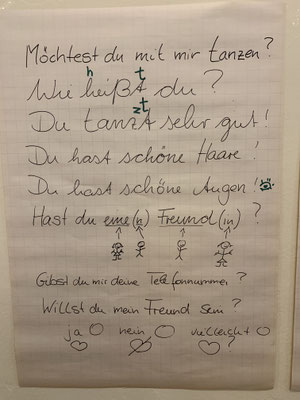 Möchtest du mit mir tanzen?
Wie heißt du?
Du tanzt sehr gut!
Du hast schöne Haare!
Du hast schöne Augen!
Hast du eine(n) Freund(in)?
Gibst du mir deine Telefonnummer?
Willst du mein Freund sein?
ja nein vielleicht
?